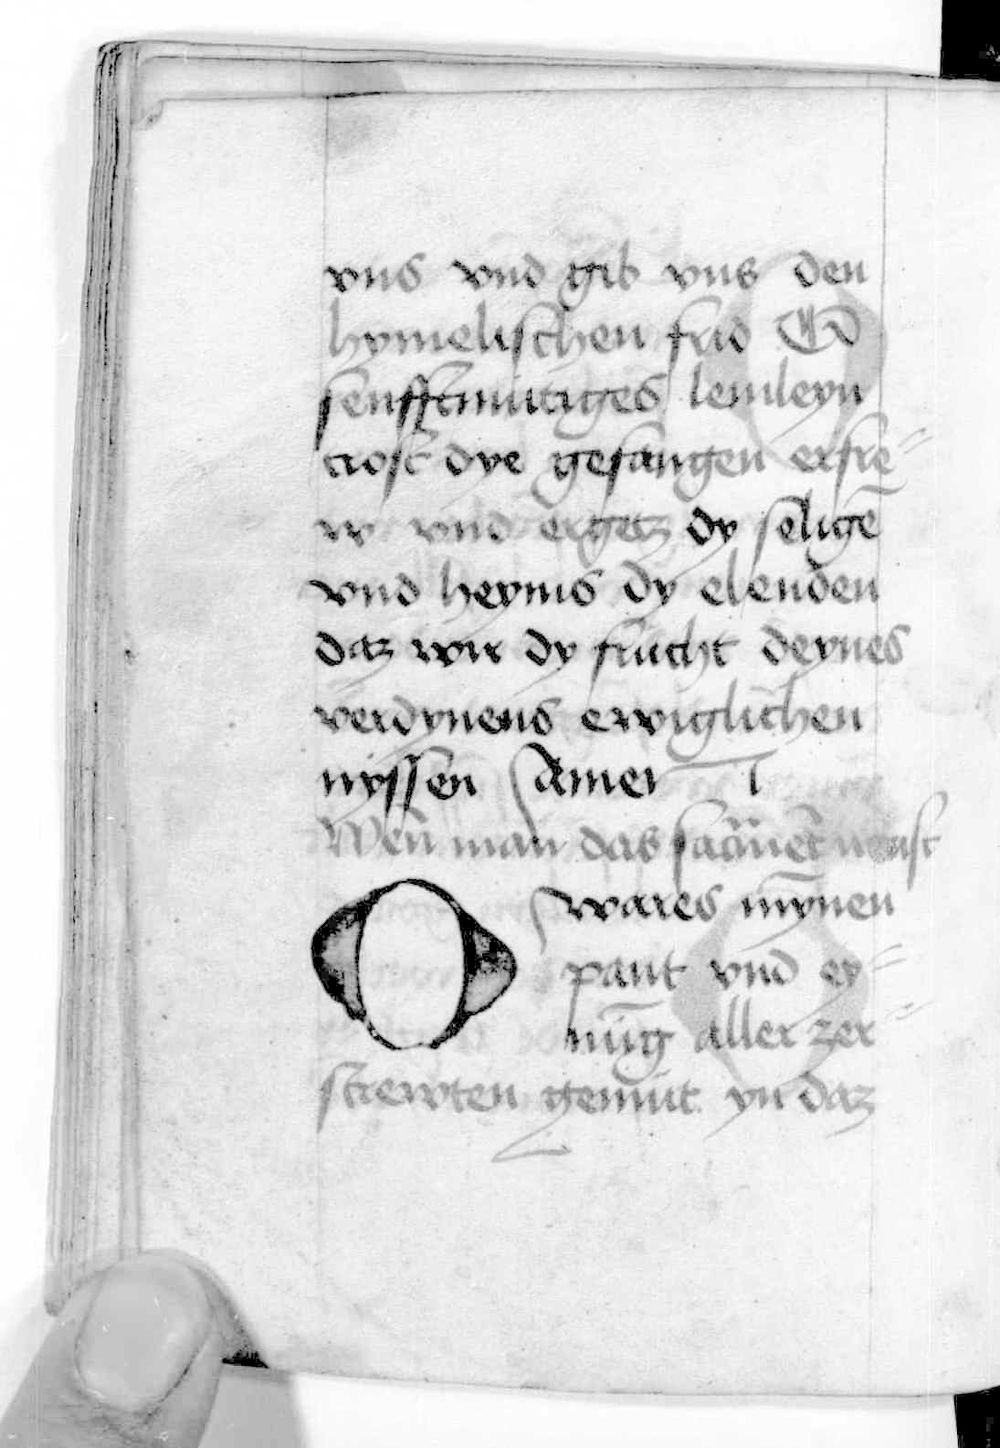 vns vnd gib vns den
hymelischen frid O
senfftmütiges lemleyn
trost dye gefangen erfre=
w vnd ergetz dy seligē
vnd heyms dy elenden
daz wir dy frücht deynes
verdynens ewiglichen
nyssen Amen
Wen man das sacramēt
O wares mȳnen
pant vnd ey=
nūg aller zer=
strewten gemüt yn daz